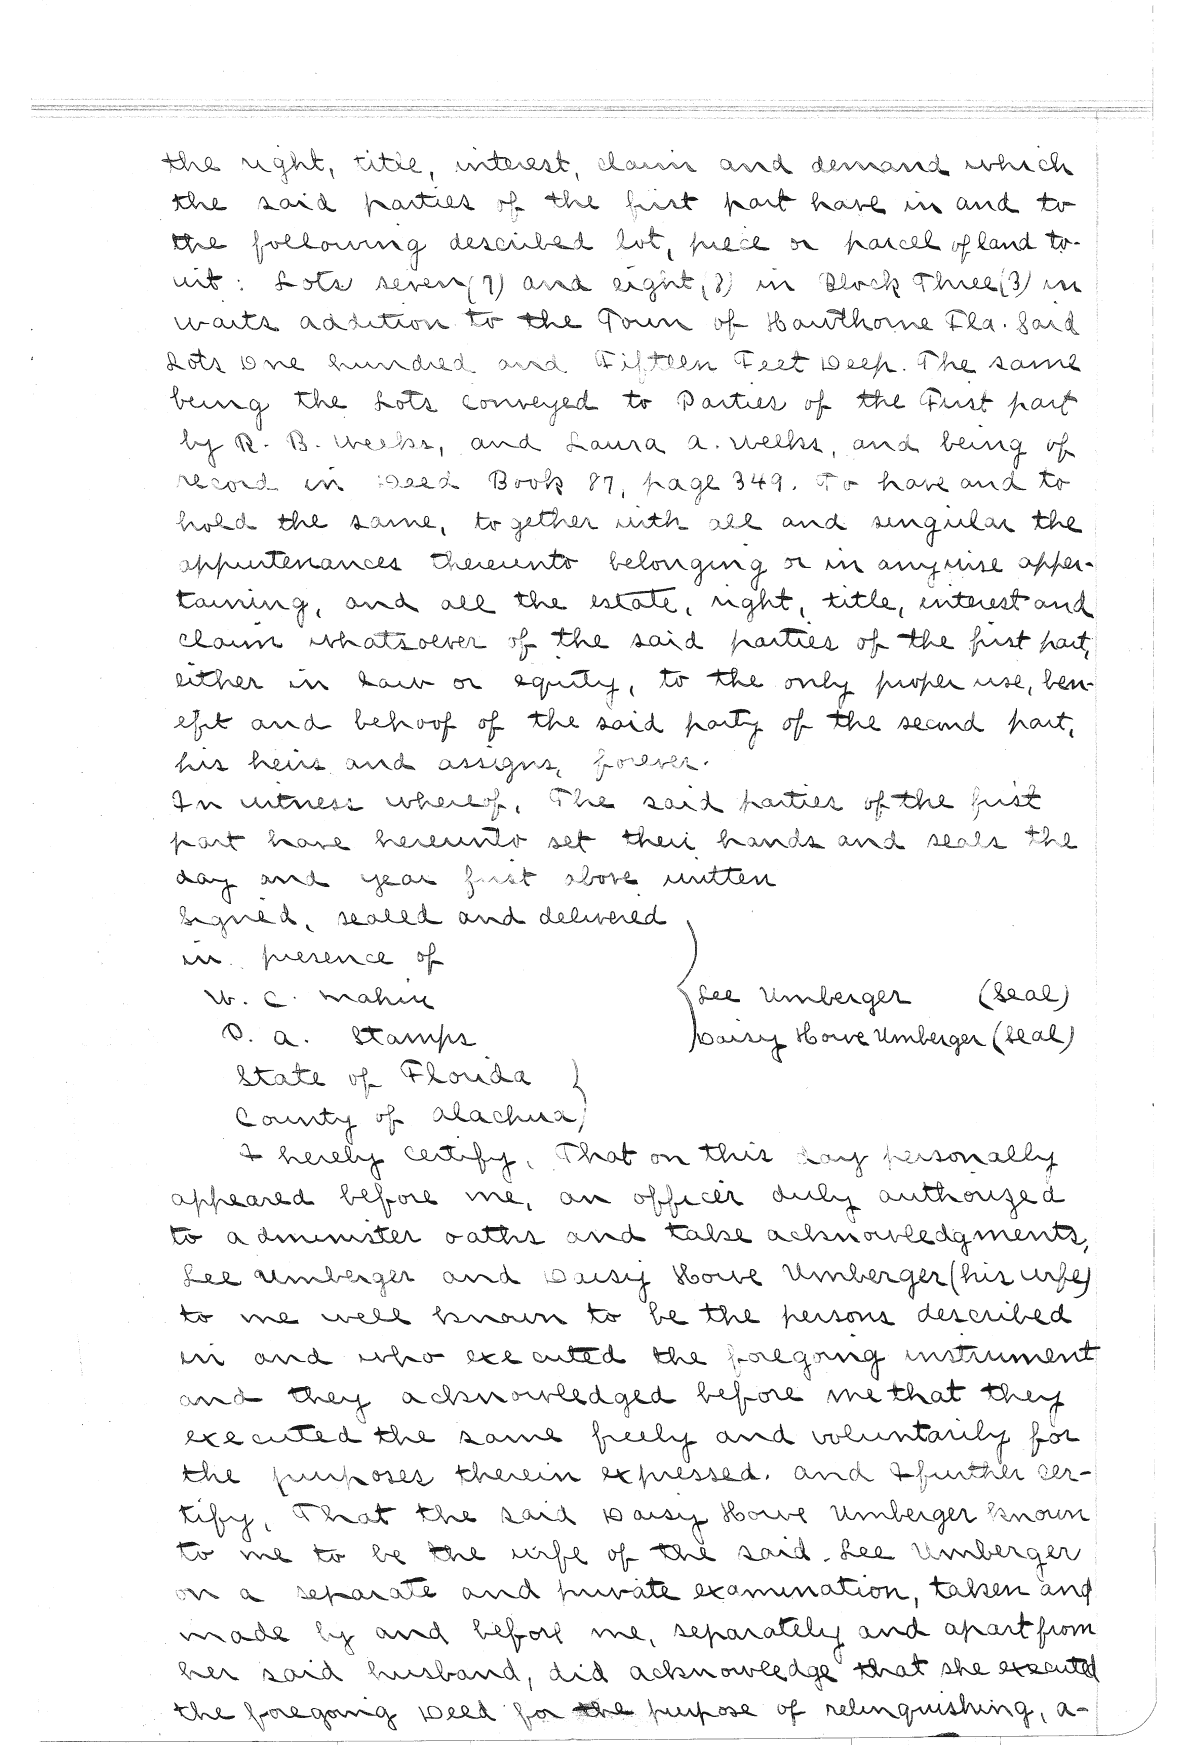 the right, title, interest, claim and demand which
the said parties of the first part have in and to
the following described lot, piece or parcel of land to-
wit: Lots seven (7) and eight, (8) in Block Three (3) in
Waits addition to the Town of Hawthorne Fla. Said
Lots One hundred and Fifteen Feet Deep. The same
being the Lots conveyed to Parties of the First part
by R. B. Weeks, and Laura A. Weeks, and being of
record in Deed Book 87, page 349. To have and to
hold the same, together with all and singular the
appurtenances thereunto belonging or in anywise apper-
taining, and all the estate, right, title, interest and
claim whatsoever of the said parties of the first part,
either in Law or equity, to the only proper use, ben-
efit and behoof of the said party of the second part,
his heirs and assigns, forever.
In witness whereof, The said parties of the first
part have hereunto set their hands and seals the
day and year first above written
Signed, sealed and delivered
in presence of
W. C. Mahin Lee Umberger (Seal)
D. A. Stamps Daisy Howe Umberger (Seal)
State of Florida
County of Alachua
I hereby certify, That on this day personally
appeared before me, an officer duly authorized
to administer oaths and take acknowledgments,
Lee Umberger and Daisy Howe Umberger (his wife)
to me well known to be the persons described
in and who executed the foregoing instrument
and they acknowledged before me that they
executed the same freely and voluntarily for
the purposes therein expressed. And I further cer-
tify, That the said Daisy Howe Umberger known
to me to be the wife of the said Lee Umberger
on a separate and private examination, taken and
made by and before me, separately and apart from
her said husband, did acknowledge that she executed
the foregoing Deed for the purpose of relinquishing, a-